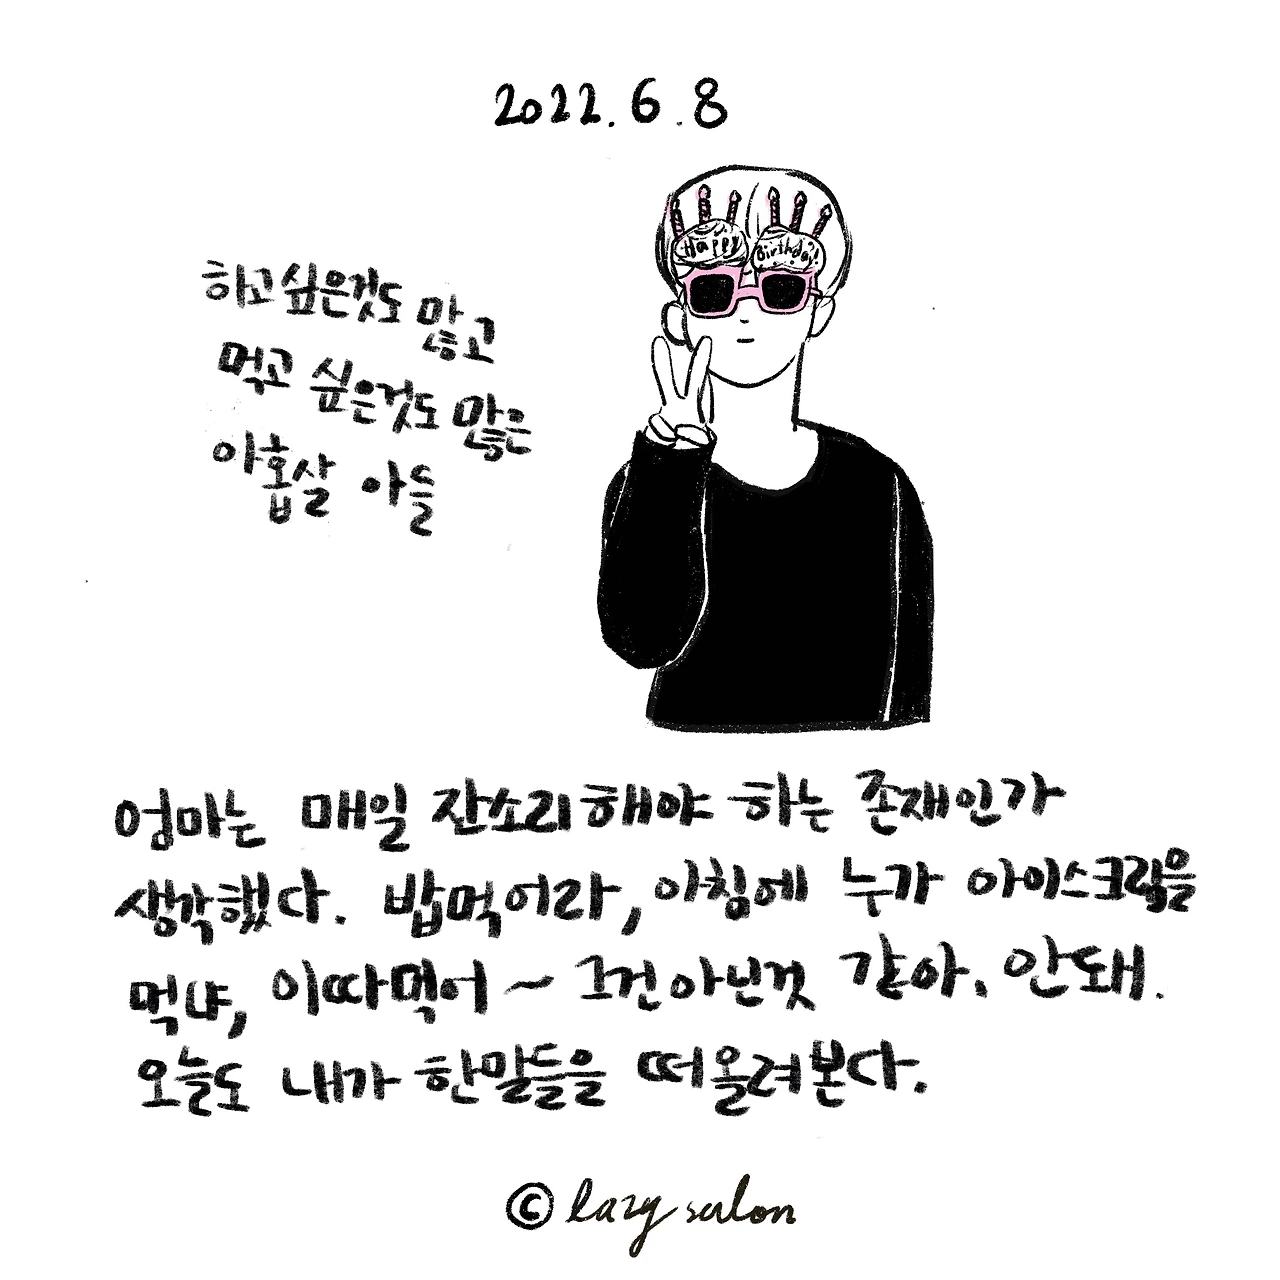 2022. 6. 8
Happy Birthday!
하고싶은것도 많고
먹고 싶은것도 많은
아홉살 아들
엄마는 매일 잔소리해야 하는 존재인가
생각했다. 밥먹어라, 아침에 누가 아이스크림을
먹냐, 이따먹어~ 그건아닌것 같아. 안돼.
오늘도 내가 한말들을 떠올려본다.
© lazy salon